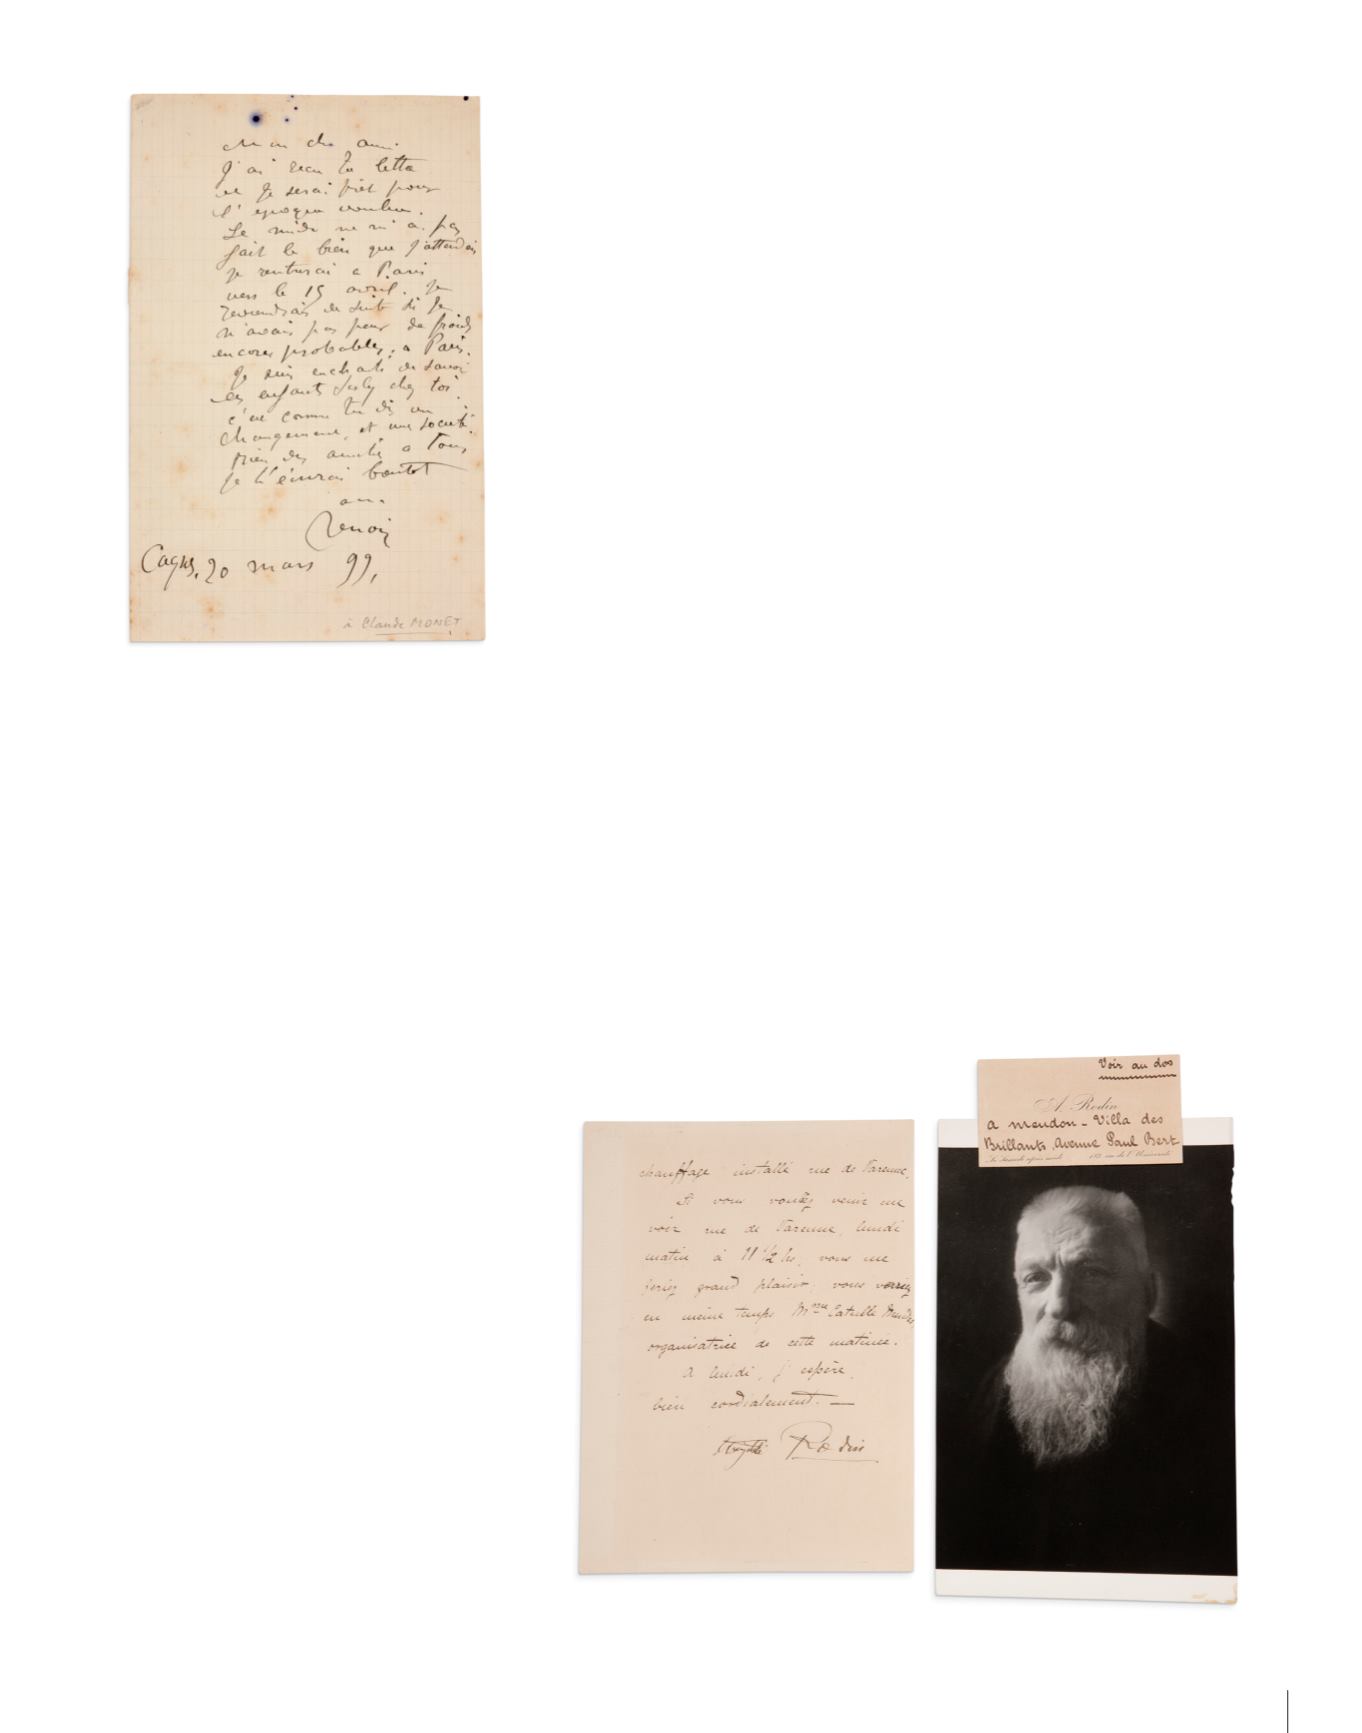 Mon cher ami.
J'ai reçu ta lettre
et je serai prêt pour
l'époque voulue.
Le midi ne m'a pas
fait le bien que j'attendais
je rentrerai a Paris
vers le 15 avril. Je
reviendrais de suite si je
n'avais pas peur de froids
encores probables, a Paris.
Je suis enchanté de savoir
les enfants Sisley chez toi.
c'est comme tu dis un
changement, et une société.
Bien des amitiés a tous
je t'écrirai bientôt
ami
Renoir
Cagnes, 20 mars 99,
à Claude MONET
Voir au dos
A. Rodin
a meudon - Villa des
Brillants, Avenue Paul Bert
182 rue de l'Université
chauffage installé rue de Varenne,
Si vous voulez venir me
voir rue de Varenne, lundi
matin à 11 1/2 hs, vous me
feriez grand plaisir, vous verriez
en même temps Mme Catulle Mendès,
organisatrice de cette matinée.
A lundi, j'espère,
bien cordialement. —
Rodin